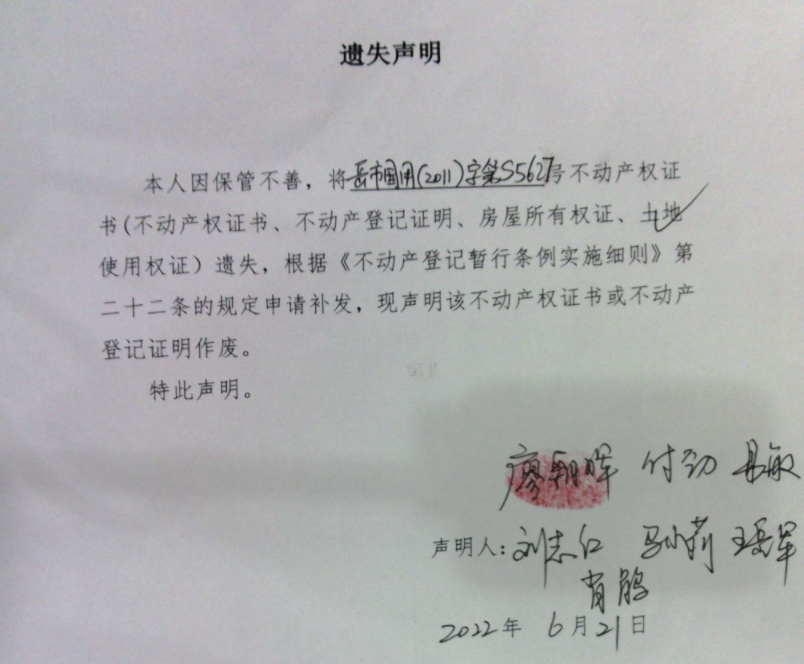 遗失声明
本人因保管不善，将岳市国用(2011)字第S5627号不动产权证
书(不动产权证书、不动产登记证明、房屋所有权证、土地
使用权证）遗失，根据《不动产登记暂行条例实施细则》第
二十二条的规定申请补发，现声明该不动产权证书或不动产
登记证明作废。
特此声明。
廖朝晖 付劲 敏
声明人：刘志仁 马小莉 王岳军
肖鹃
2022年 6月21日